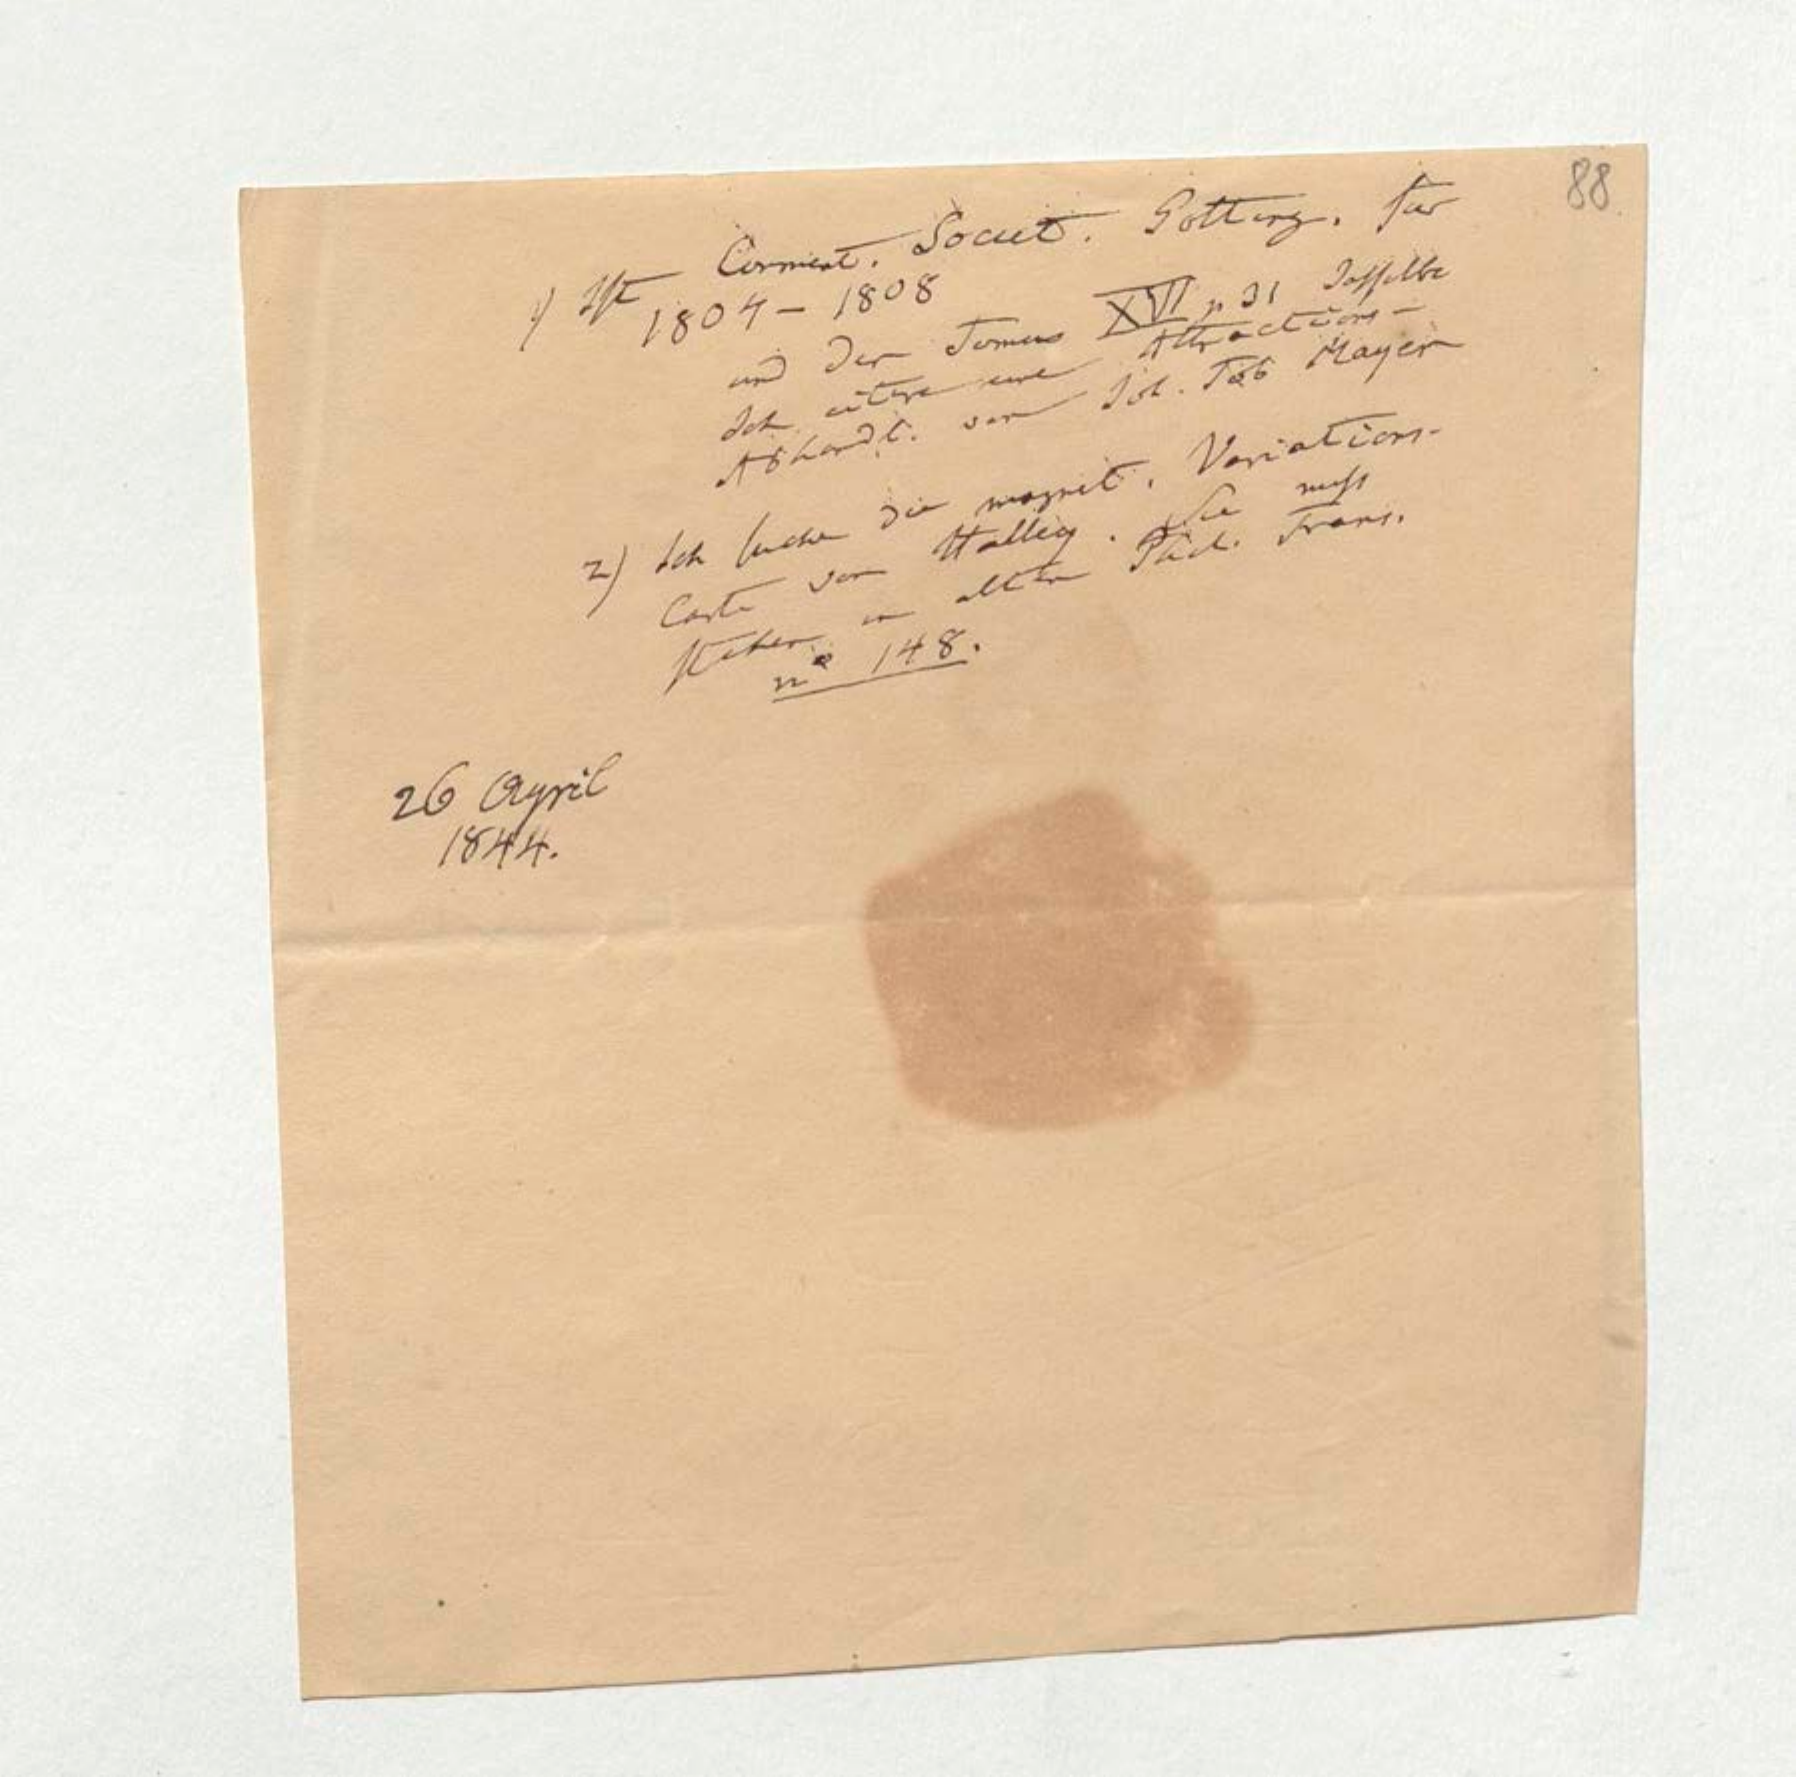 88
1) Ist Comment. Societ. Gotting. für
1804 – 1808
und der Tomus XVI p 31 dasselbe
Ich citire eine Attractions-
Abhandl. von Joh. Tob Mayer
2) Ich suche die magnet. Variations-
Carte von Halley. Sie muss
stehen in alten Phil. Trans.
no 148.
26 April
1844.